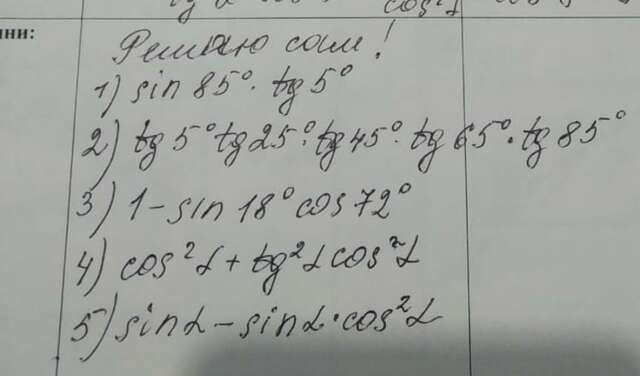 ини:
Решаю сам!
1) sin 85° · tg 5°
2) tg 5° tg 25° · tg 45° · tg 65° · tg 85°
3) 1 - sin 18° cos 72°
4) cos² α + tg² α cos² α
5) sin α - sin α · cos² α